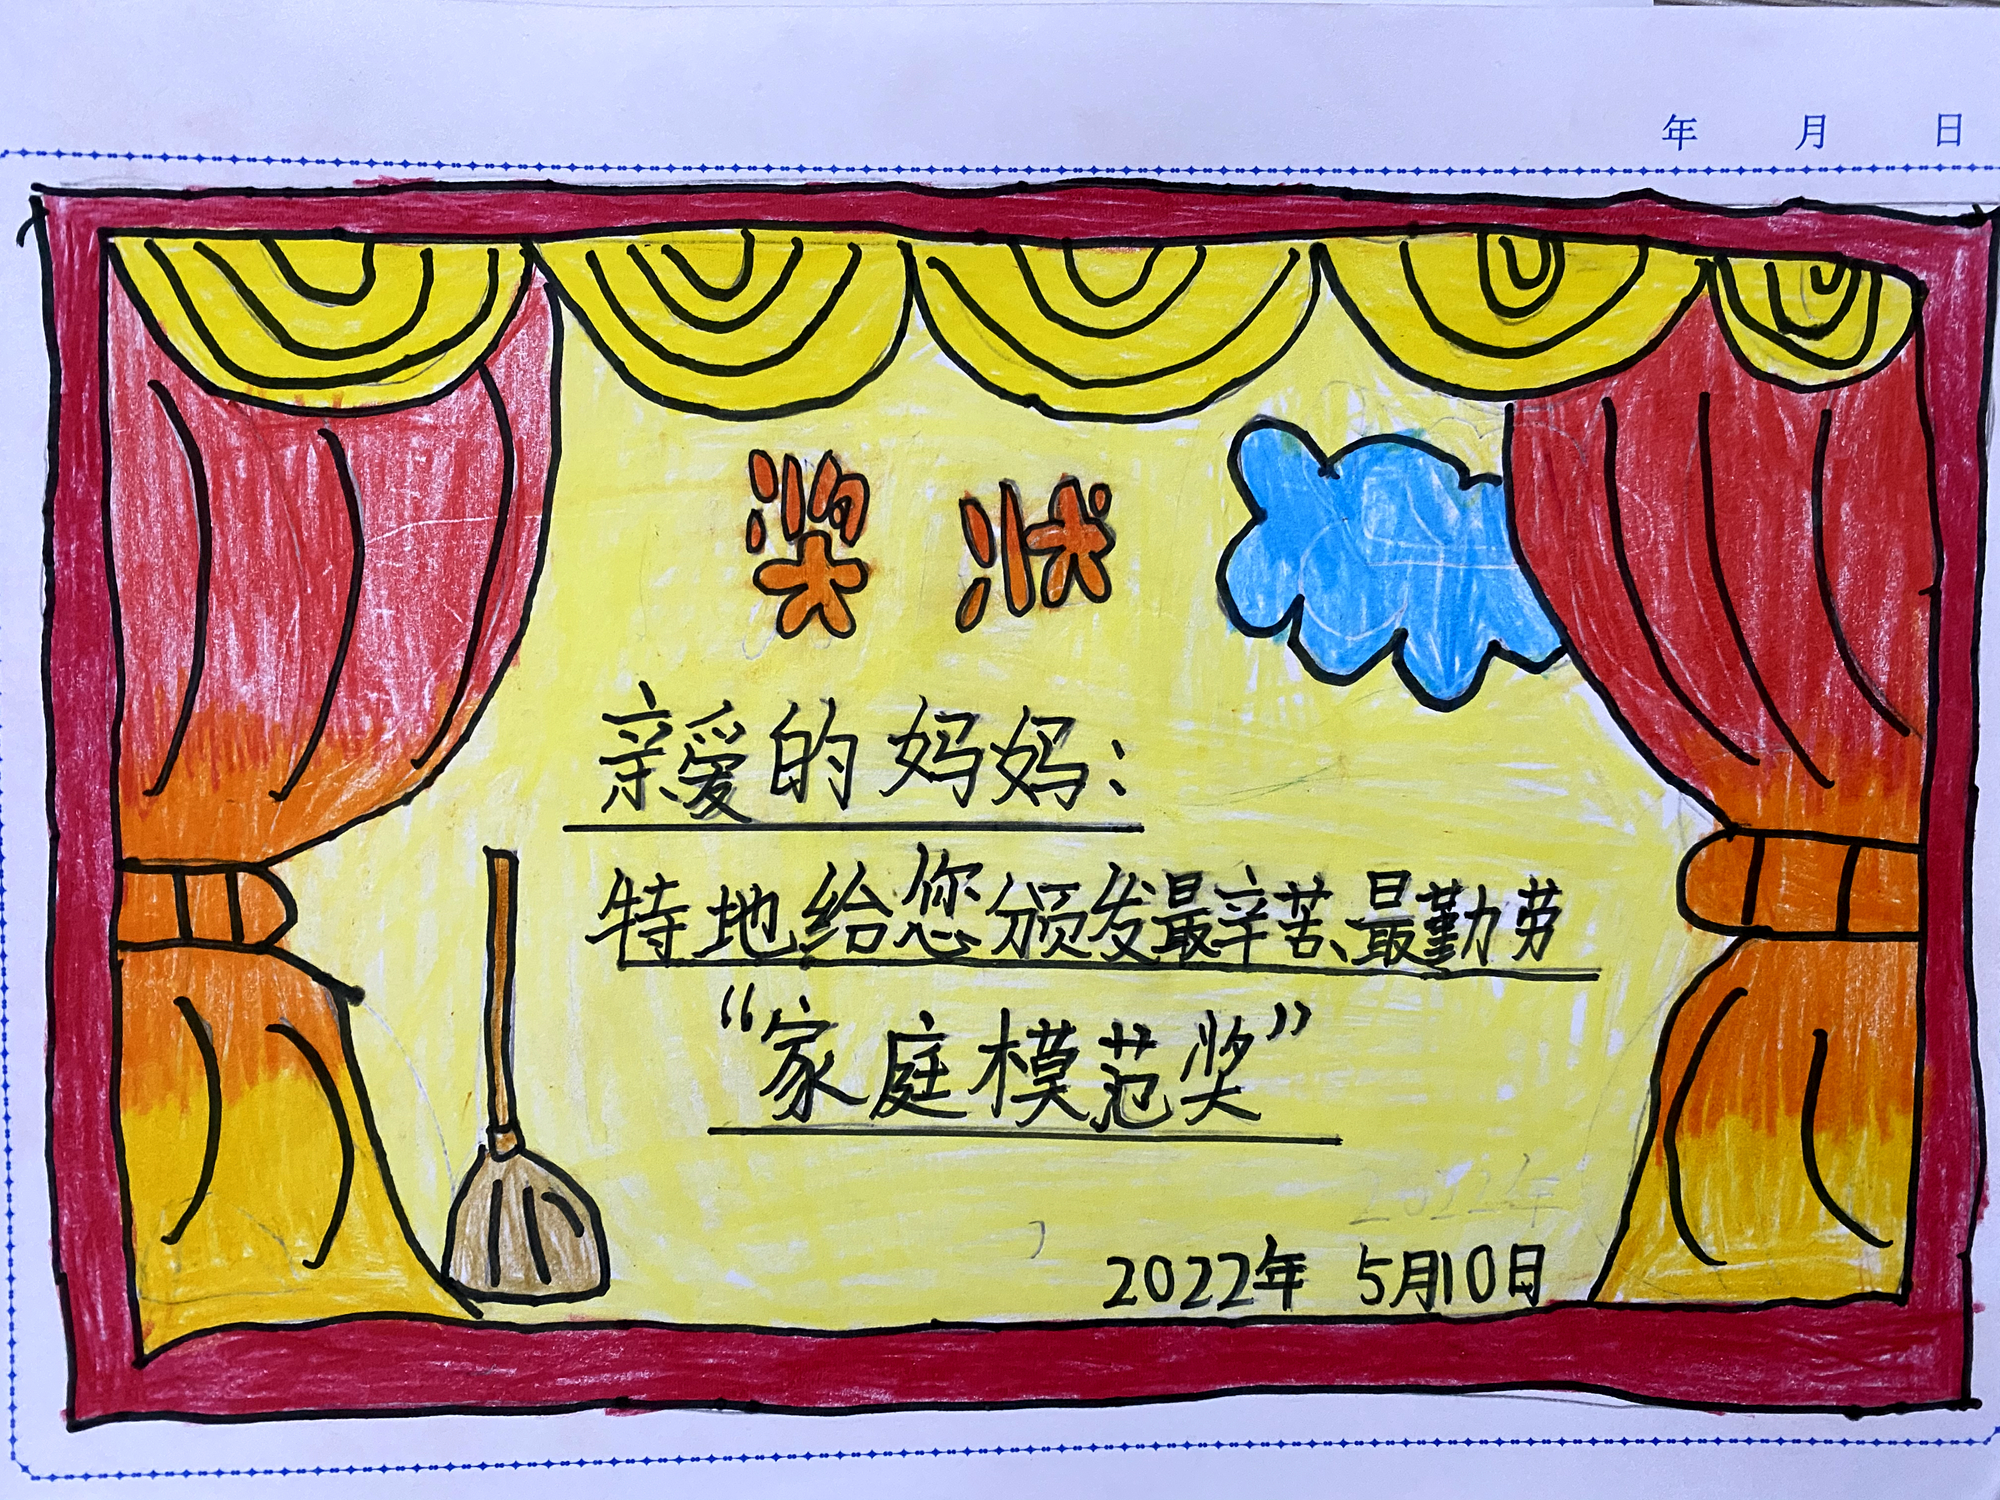 年 月 日
奖状
亲爱的妈妈：
特地给您颁发最辛苦、最勤劳
“家庭模范奖”
2022年
2022年 5月10日